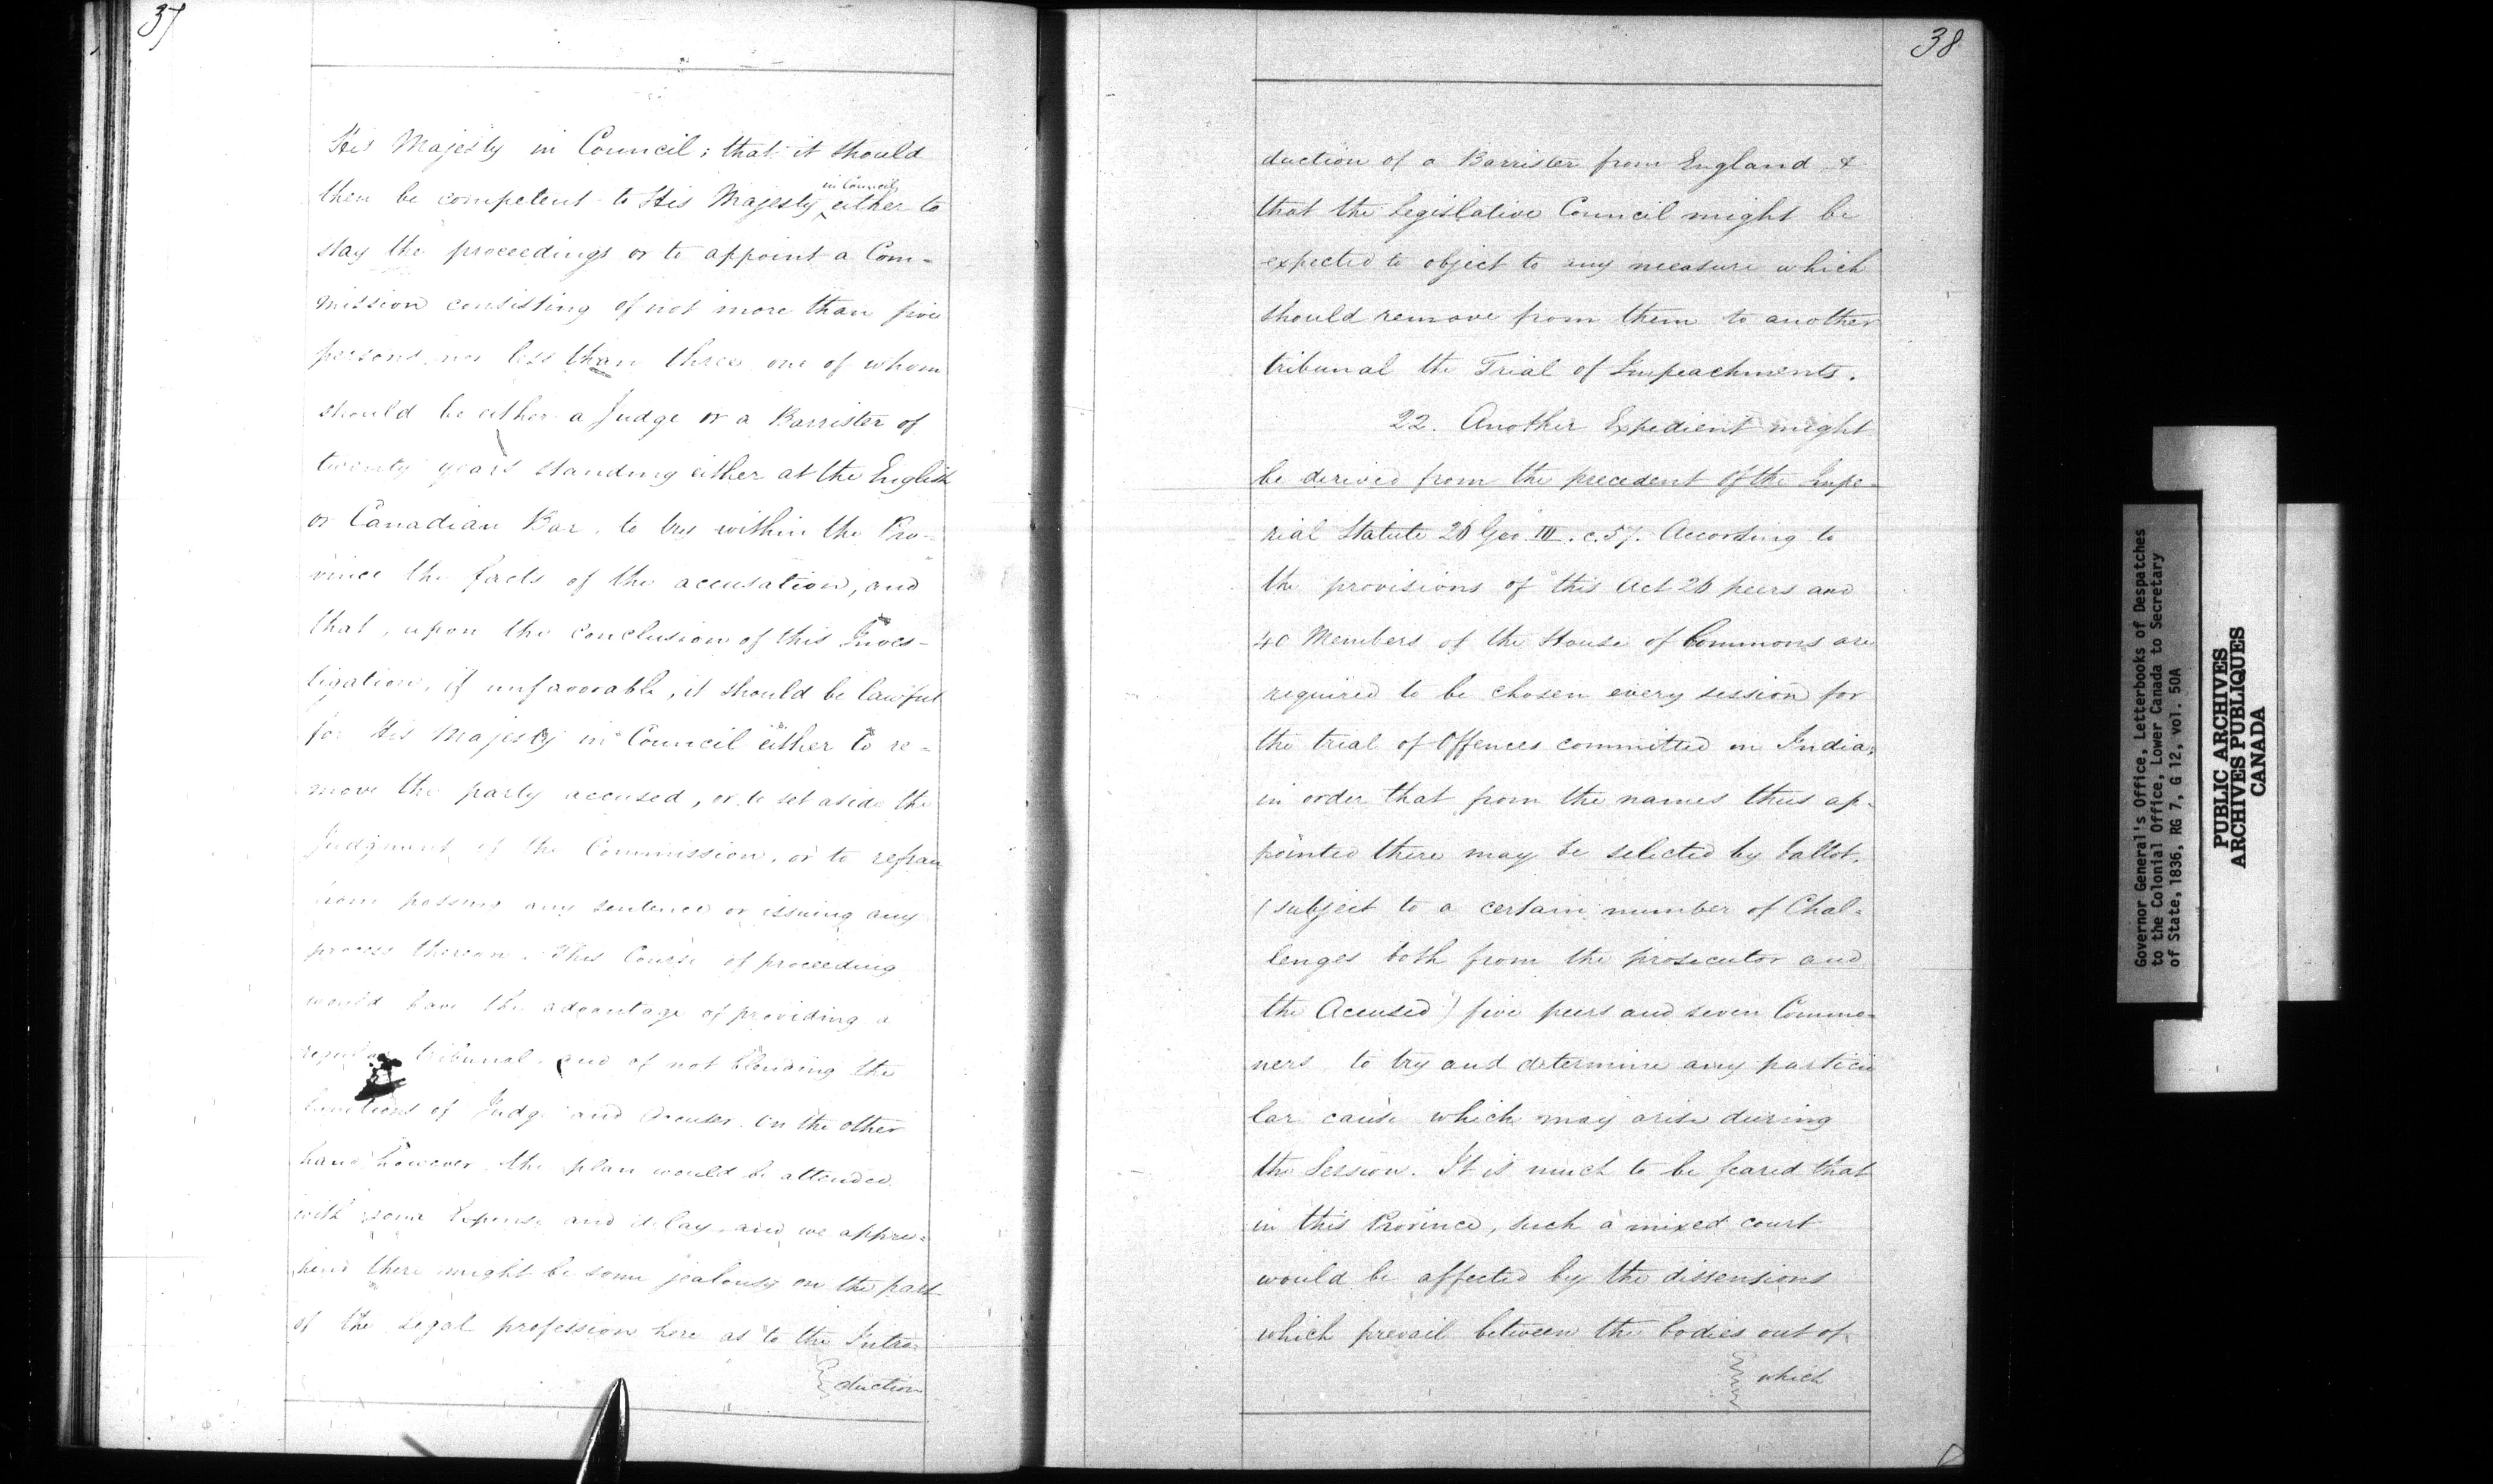 37
His Majesty in Council; that it should
then be competent to His Majesty in Council either to
stay the proceedings or to appoint a Com-
mission consisting of not more than five
persons nor less than three one of whom
should be either a Judge or a Barrister of
twenty years standing either at the English
or Canadian Bar, to try within the Pro-
vince the facts of the accusation, and
that, upon the conclusion of this Inves-
tigation, if unfavorable, it should be lawful
for His Majesty in Council either to re-
move the party accused, or to set aside the
Judgment of the Commission, or to refrain
from passing any sentence or issuing any
process thereon. This Course of proceeding
would have the advantage of providing a
regular tribunal, and of not blending the
functions of Judge and Accuser. On the other
hand however the plan would be attended
with some Expense and delay, and we appre-
hend there might be some jealousy on the part
of the Legal profession here as to the Intro-
duction
38
duction of a Barrister from England &
that the Legislative Council might be
expected to object to any measure which
should remove from them to another
tribunal the Trial of Impeachments.
22. Another Expedient might
be derived from the precedent of the Impe-
rial Statute 26 Geo III. c. 57. According to
the provisions of this Act 26 peers and
40 Members of the House of Commons are
required to be chosen every session for
the trial of Offences committed in India,
in order that from the names thus ap-
pointed there may be selected by ballot,
(subject to a certain number of Chal-
lenges both from the prosecutor and
the Accused) five peers and seven Commo-
ners to try and determine any particu
lar cause which may arise during
the Session. It is much to be feared that
in this Province, such a mixed court
would be affected by the dissensions
which prevail between the bodies out of
which
Governor General's Office, Letterbooks of Despatches
to the Colonial Office, Lower Canada to Secretary
of State, 1836, RG 7, G 12, vol. 50A
PUBLIC ARCHIVES
ARCHIVES PUBLIQUES
CANADA